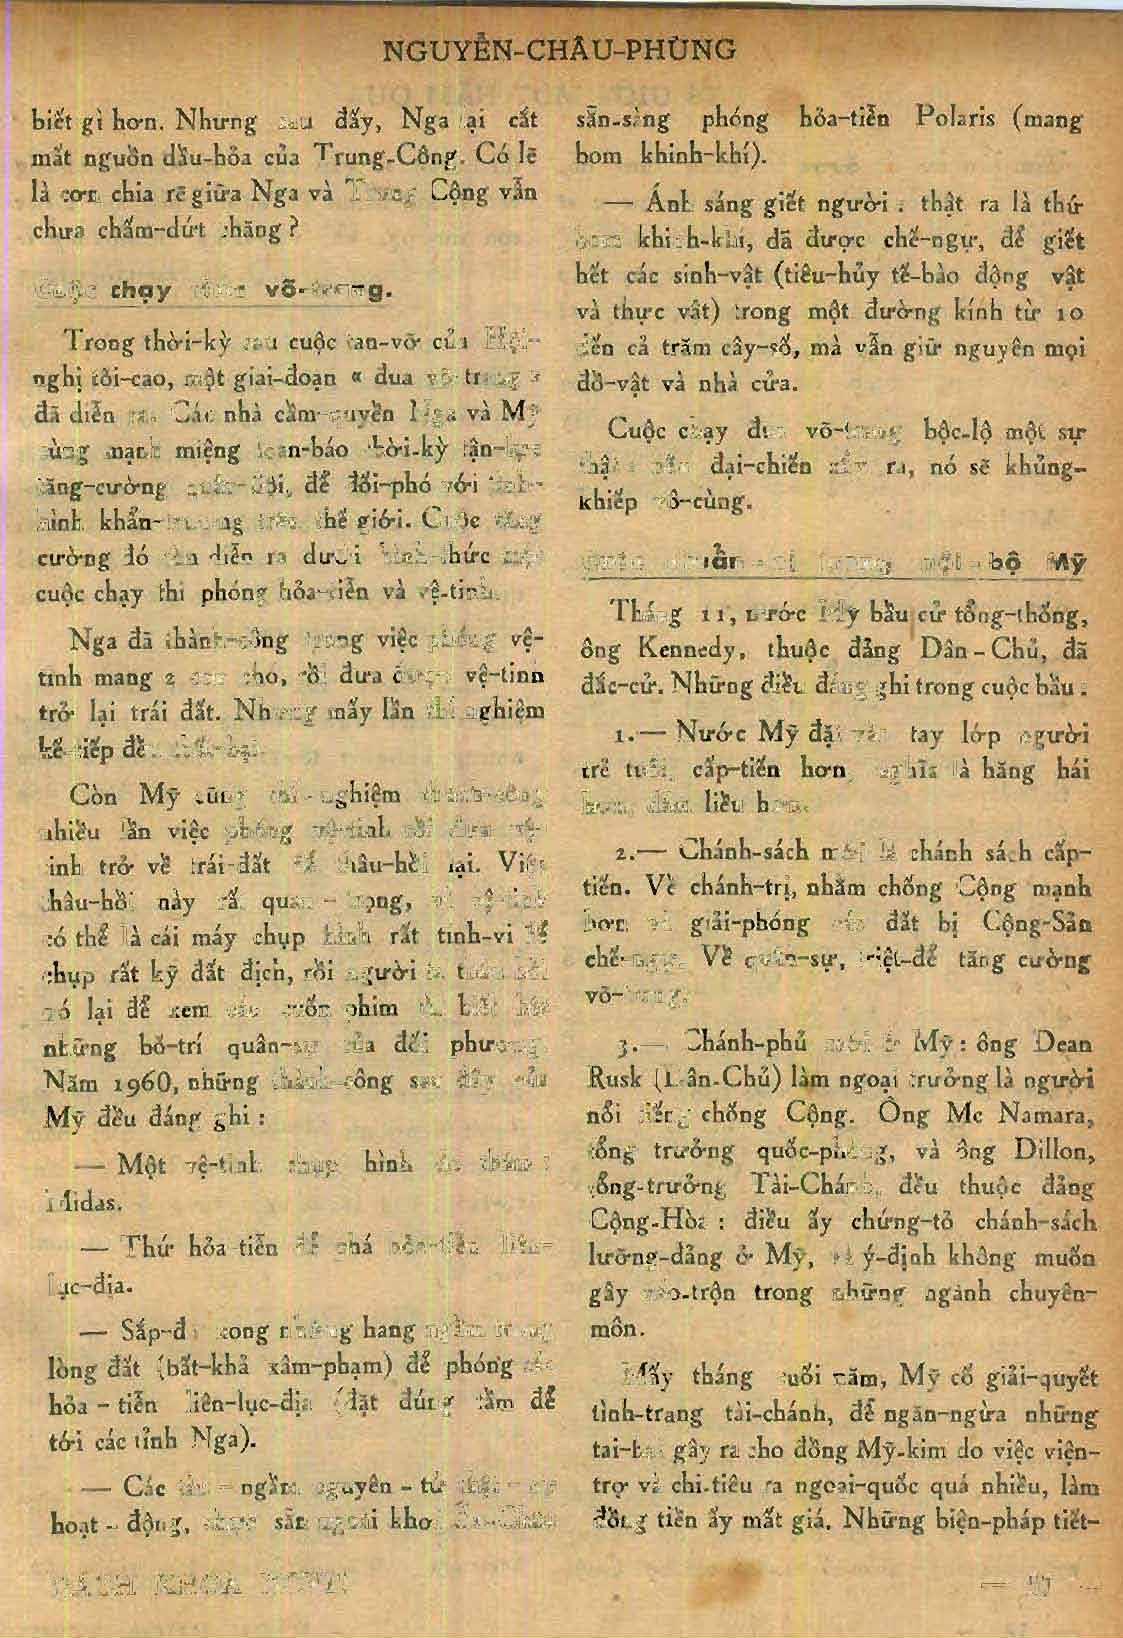 NGUYỄN-CHÂU-PHÙNG
biết gì hơn. Nhưng sau đấy, Nga lại cắt
mất nguồn dầu-hỏa của Trung-Cộng. Có lẽ
là cơn chia rẽ giữa Nga và Trung Cộng vẫn
chưa chấm-dứt chăng ?
Cuộc chạy võ-trang.
Trong thời-kỳ sau cuộc tan-vỡ của Hội-
nghị tối-cao, một giai-đoạn « đua võ-trang »
đã diễn ra. Các nhà cầm-quyền Nga và Mỹ
cùng mạnh miệng loan-báo thời-kỳ tận-lực
tăng-cường quân-đội, để đối-phó với tình-
hình khẩn-trương trên thế giới. Cuộc tăng
cường đó diễn ra dưới hình-thức một
cuộc chạy thi phóng hỏa-tiễn và vệ-tinh.
Nga đã thành-công trong việc phóng vệ-
tinh mang 2 con chó, rồi đưa được vệ-tinh
trở lại trái đất. Nhưng mấy lần thí nghiệm
kế-tiếp đều thất-bại.
Còn Mỹ cũng thí-nghiệm thành-công
nhiều lần việc phóng vệ-tinh rồi đưa vệ-
tinh trở về trái-đất để thâu-hồi lại. Việc
thâu-hồi này rất quan-trọng, vì vệ-tinh
có thể là cái máy chụp hình rất tinh-vi để
chụp rất kỹ đất địch, rồi người ta thâu hồi
nó lại để xem các cuốn phim thì biết hết
những bố-trí quân-sự của đối phương.
Năm 1960, những thành-công sau đây của
Mỹ đều đáng ghi :
— Một vệ-tinh chụp hình do thám :
Midas.
— Thứ hỏa-tiễn để phá hỏa-tiễn liên-
lục-địa.
— Sắp-đặt xong những hang ngầm trong
lòng đất (bất-khả xâm-phạm) để phóng các
hỏa - tiễn liên-lục-địa (đặt đúng tầm để
tới các tỉnh Nga).
— Các tàu - ngầm nguyên - tử
hoạt - động, sẵn ngoài khơi Âu-Châu
sẵn-sàng phóng hỏa-tiễn Polaris (mang
bom khinh-khí).
— Ánh sáng giết người : thật ra là thứ
bom khinh-khí, đã được chế-ngự, để giết
hết các sinh-vật (tiêu-hủy tế-bào động vật
và thực vật) trong một đường kính từ 10
đến cả trăm cây-số, mà vẫn giữ nguyên mọi
đồ-vật và nhà cửa.
Cuộc chạy đua võ-trang bộc-lộ một sự
thật : đại-chiến xảy ra, nó sẽ khủng-
khiếp vô-cùng.
trong nội - bộ Mỹ
Tháng 11, nước Mỹ bầu cử tổng-thống,
ông Kennedy, thuộc đảng Dân - Chủ, đã
đắc-cử. Những điều đáng ghi trong cuộc bầu :
1.— Nước Mỹ đặt vào tay lớp người
trẻ tuổi, cấp-tiến hơn, nghĩa là hăng hái
hơn, dám liều hơn.
2.— Chánh-sách mới là chánh sách cấp-
tiến. Về chánh-trị, nhằm chống Cộng mạnh
hơn và giải-phóng các đất bị Cộng-Sản
chế-ngự. Về quân-sự, triệt-để tăng cường
võ-trang.
3.— Chánh-phủ mới ở Mỹ : ông Dean
Rusk (Dân-Chủ) làm ngoại trưởng là người
nổi tiếng chống Cộng. Ông Mc Namara,
tổng trưởng quốc-phòng, và ông Dillon,
tổng-trưởng Tài-Chánh, đều thuộc đảng
Cộng-Hòa : điều ấy chứng-tỏ chánh-sách
lưỡng-đảng ở Mỹ, và ý-định không muốn
gây xáo-trộn trong những ngành chuyên-
môn.
Mấy tháng cuối năm, Mỹ cố giải-quyết
tình-trạng tài-chánh, để ngăn-ngừa những
tai-hại gây ra cho đồng Mỹ-kim do việc viện-
trợ và chi-tiêu ra ngoại-quốc quá nhiều, làm
đồng tiền ấy mất giá. Những biện-pháp tiết-
BÁCH KHOA